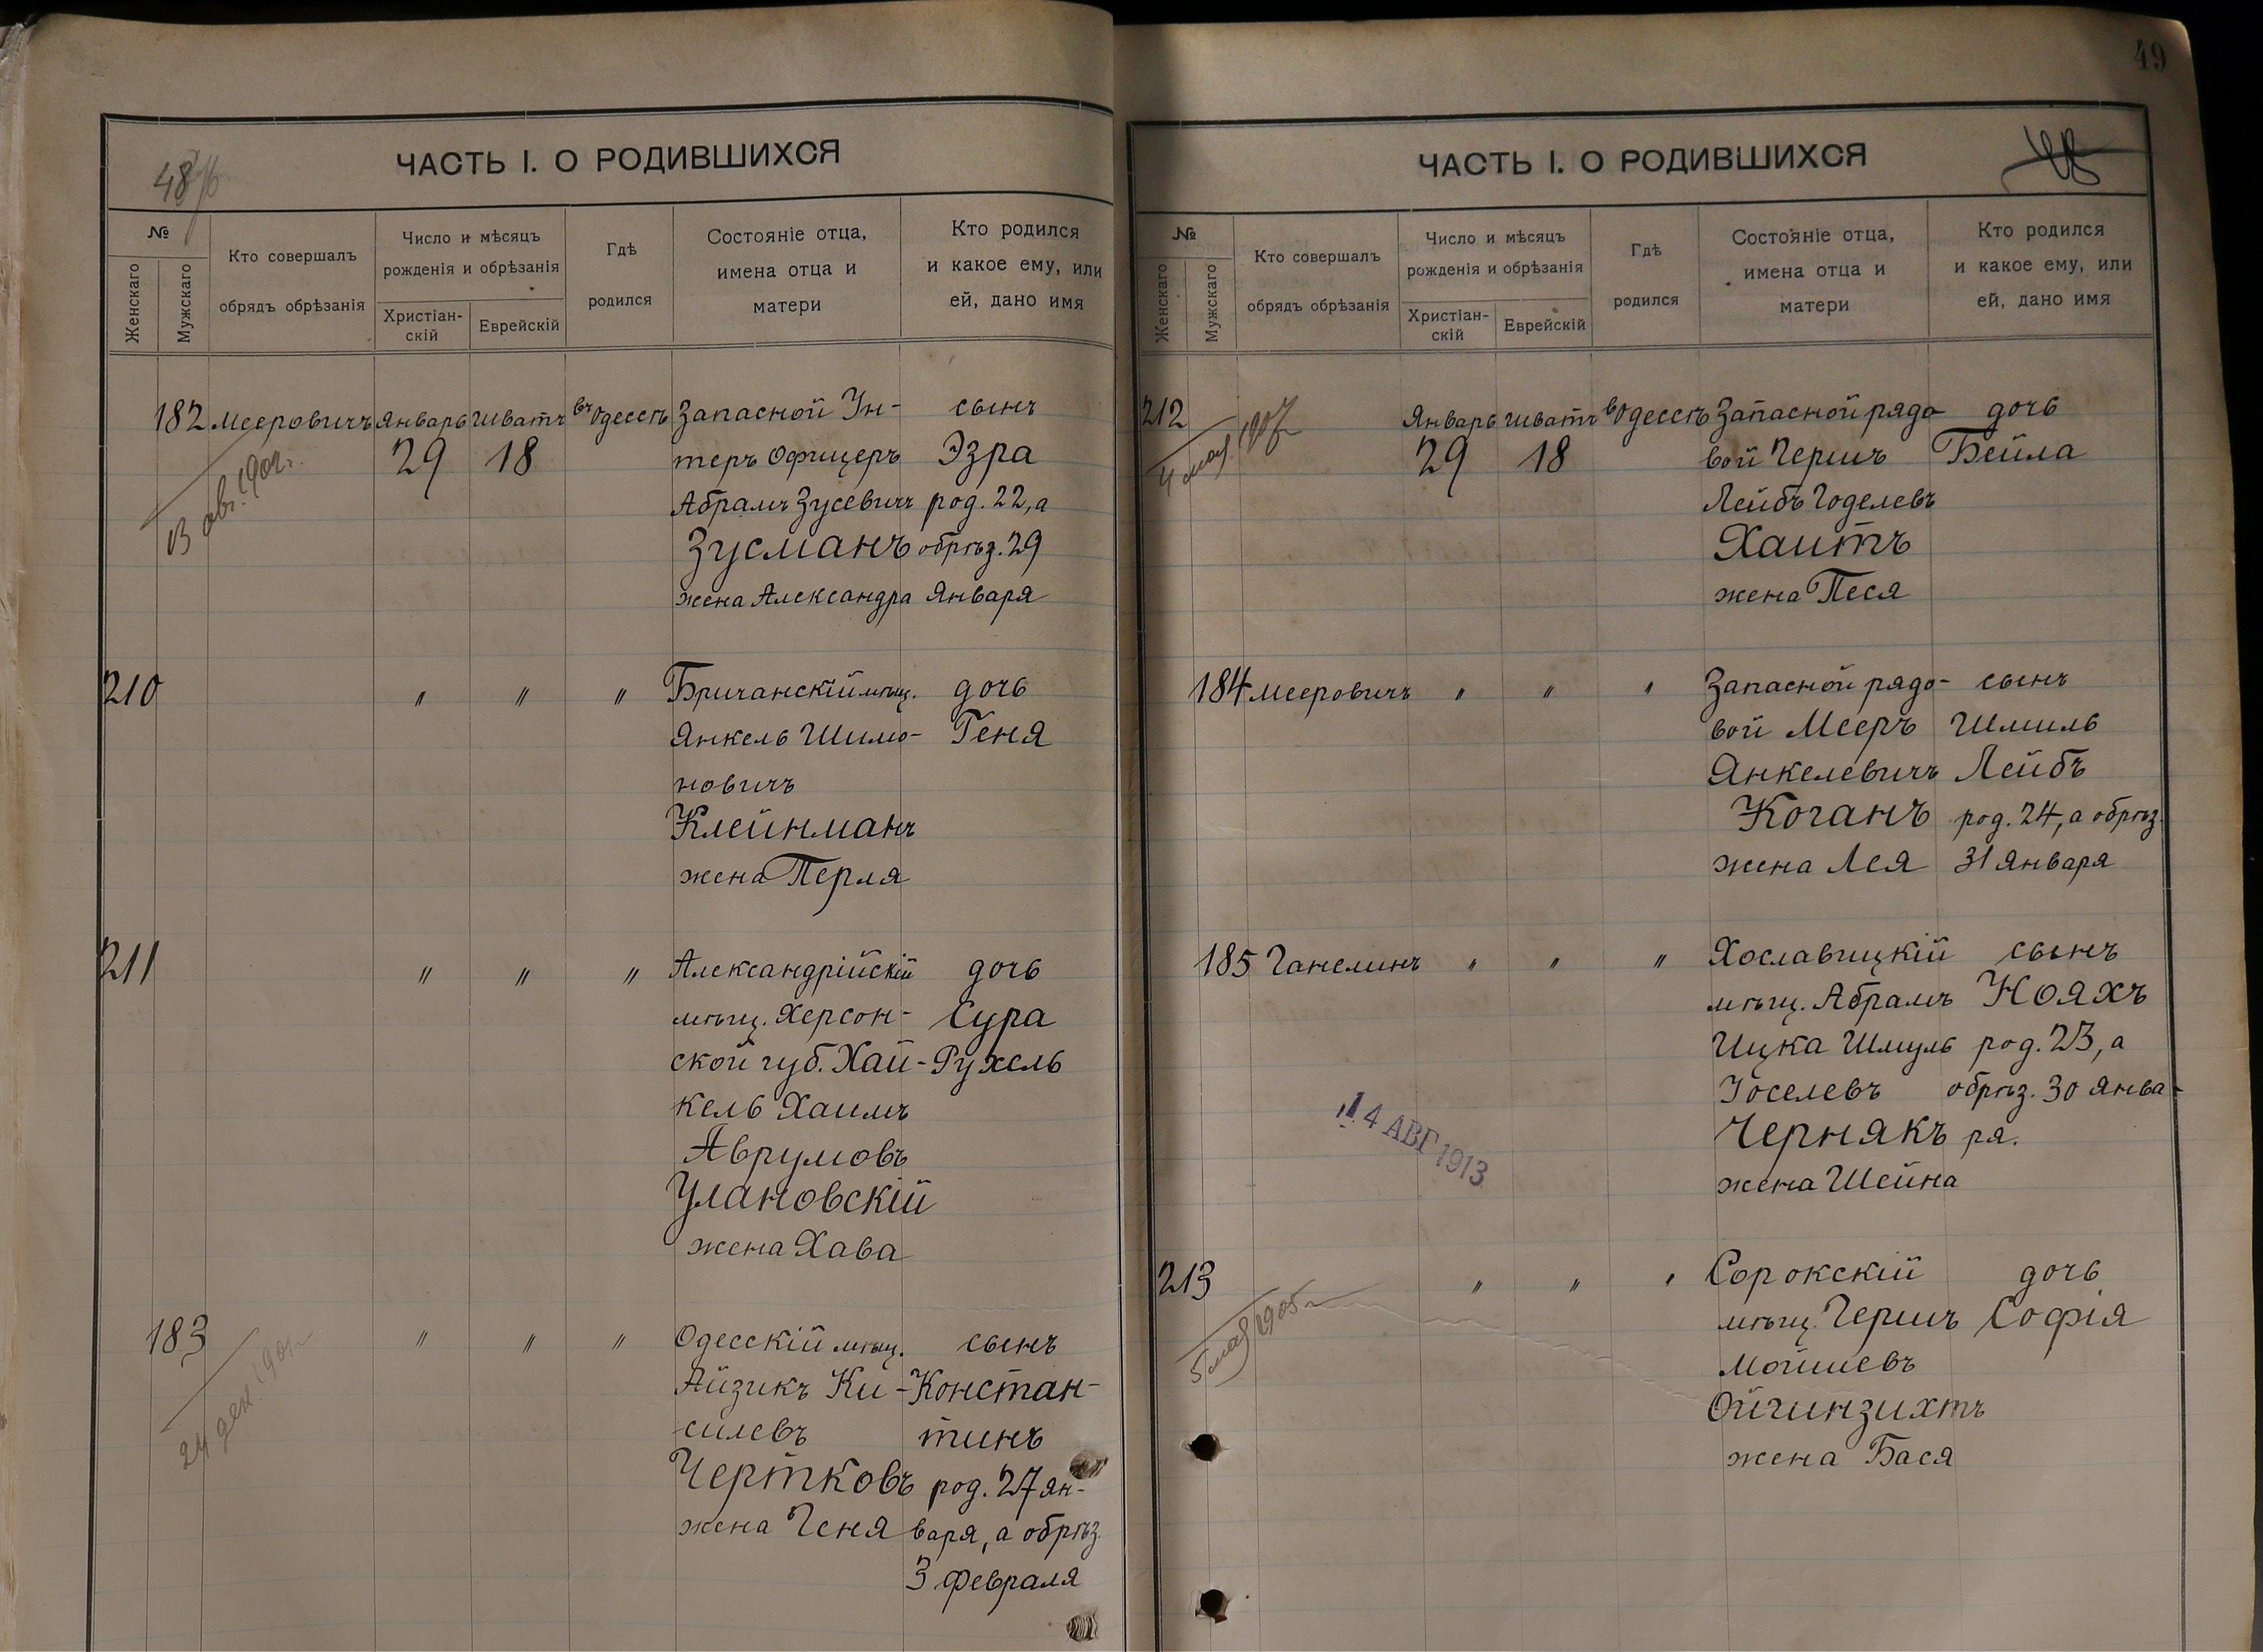 48
ЧАСТЬ I. О РОДИВШИХСЯ
№
Женскаго
Мужскаго
Кто совершалъ
обрядъ обрѣзанія
Число и мѣсяцъ
рожденія и обрѣзанія
Христіан-
скій
Еврейскій
Гдѣ
родился
Состояніе отца,
имена отца и
матери
Кто родился
и какое ему, или
ей, дано имя
182 Мееровичъ Январь Шватъ въ Одессѣ Запасной Ун- сынъ
29 18 теръ Офицеръ Эзра
Абрамъ Зусевичъ род. 22, а
Зусманъ обрѣз. 29
жена Александра Января
13 авг. 1902 г.
210 " " " Бричанскій мѣщ. дочь
Янкель Шимо- Геня
новичъ
Клейнманъ
жена Перля
211 " " " Александрійскій дочь
мѣщ. Херсон- Сура
ской губ. Хай- Рухель
кель Хаимъ
Аврумовъ
Улановскій
жена Хава
183 " " " Одесскій мѣщ. сынъ
Айзикъ Ки- Констан-
силевъ тинъ
Чертковъ род. 27 ян-
жена Геня варя, а обрѣз.
3 февраля
24 дек 190
49
ЧАСТЬ I. О РОДИВШИХСЯ
№
Женскаго
Мужскаго
Кто совершалъ
обрядъ обрѣзанія
Число и мѣсяцъ
рожденія и обрѣзанія
Христіан-
скій
Еврейскій
Гдѣ
родился
Состояніе отца,
имена отца и
матери
Кто родился
и какое ему, или
ей, дано имя
212 Январь Шватъ въ Одессѣ Запасной рядо- дочь
29 18 вой Гершъ Бейла
Лейбъ Годелевъ
Хаитъ
жена Песя
4 мая 1907
184 Мееровичъ " " " Запасной рядо- сынъ
вой Мееръ Шмиль
Янкелевичъ Лейбъ
Коганъ род. 24, а обрѣз.
жена Лея 31 Января
185 Ганелинъ " " " Хославицкій сынъ
мѣщ. Абрамъ Нояхъ
Ицка Шмуль род. 23, а
Іоселевъ обрѣз. 30 Янва-
Чернякъ ря.
жена Шейна
14 АВГ 1913
213 " " " Сорокскій дочь
мѣщ. Гершъ Софія
Мойшевъ
Ойгинзихтъ
жена Бася
5 мая 1905